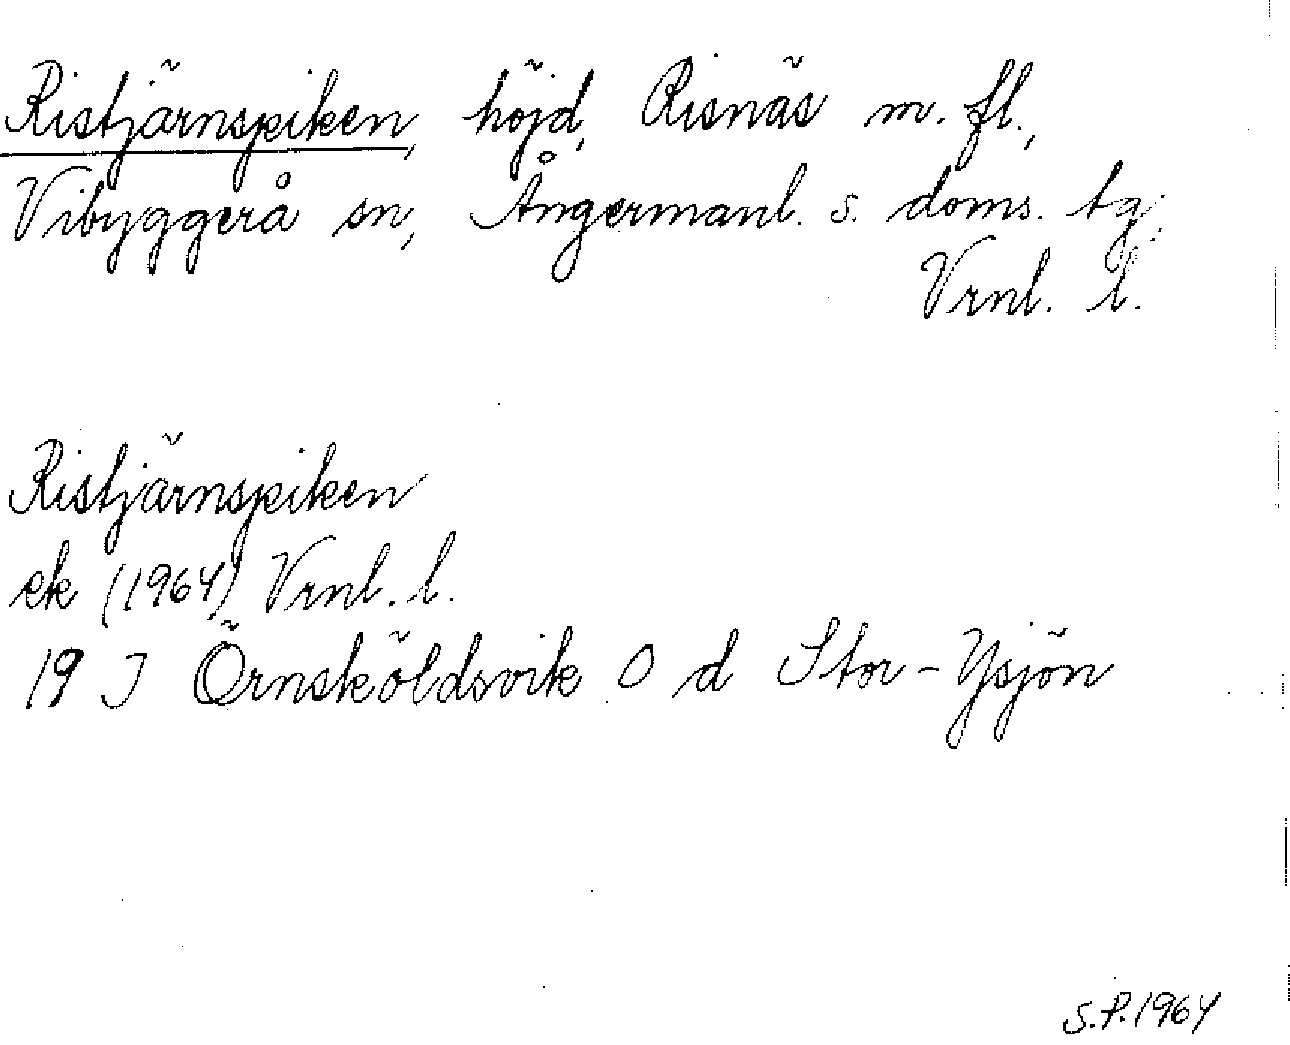 Ristjärnspiken, höjd, Risnäs m. fl.,
Vibyggerå sn, Ångermanl. s. doms. tg;
Vrnl. l.
Ristjärnspiken
ek (1964) Vrnl. l.
19 J Örnsköldsvik O d Stor-Ysjön
S.P. 1964